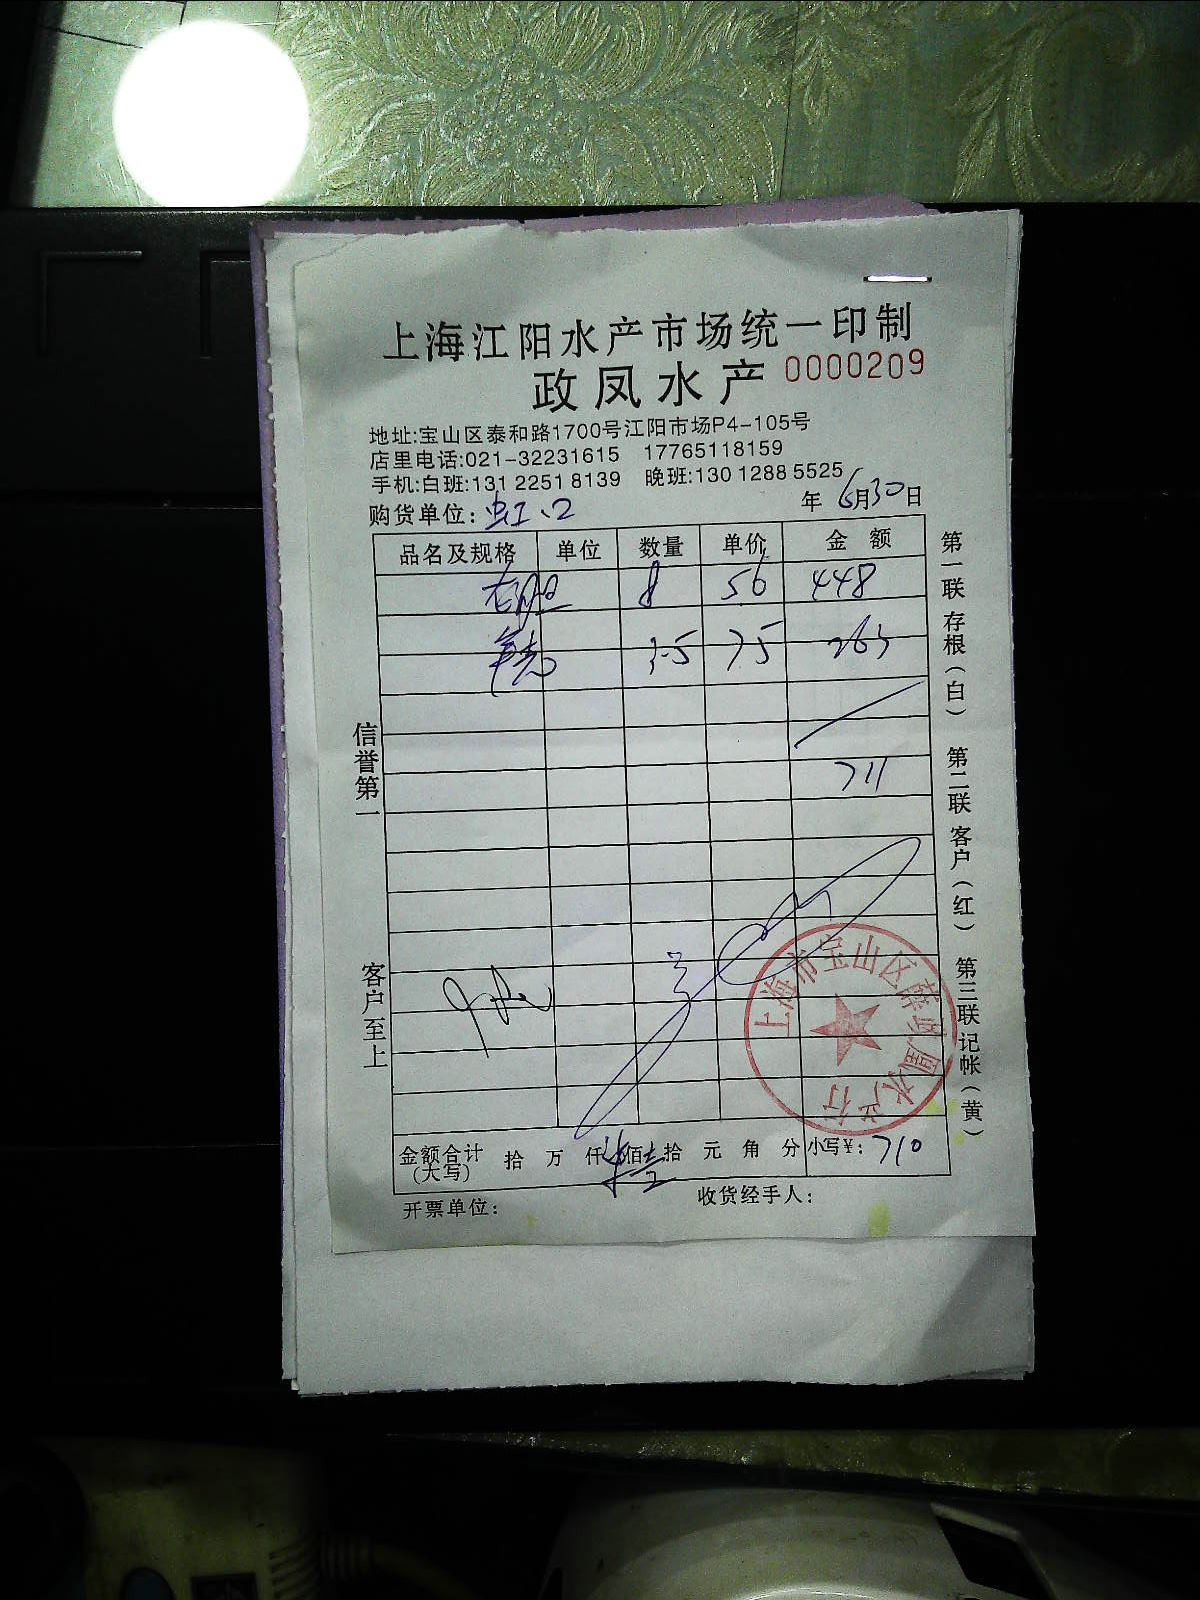 上海江阳水产市场统一印制
政凤水产 0000209
地址:宝山区泰和路1700号江阳市场P4-105号
店里电话:021-32231615 17765118159
手机:白班:131 2251 8139 晚班:130 1288 5525
购货单位:虹口 年6月30日
品名及规格 单位 数量 单价 金额
8 56 448
3.5 75 263
711
金额合计(大写) 拾 万 仟 佰 壹拾 元 角 分 小写¥:710
开票单位: 收货经手人:
信誉第一
客户至上
第一联 存根(白) 第二联 客户(红) 第三联 记帐(黄)
上海市宝山区薛 凤水产行